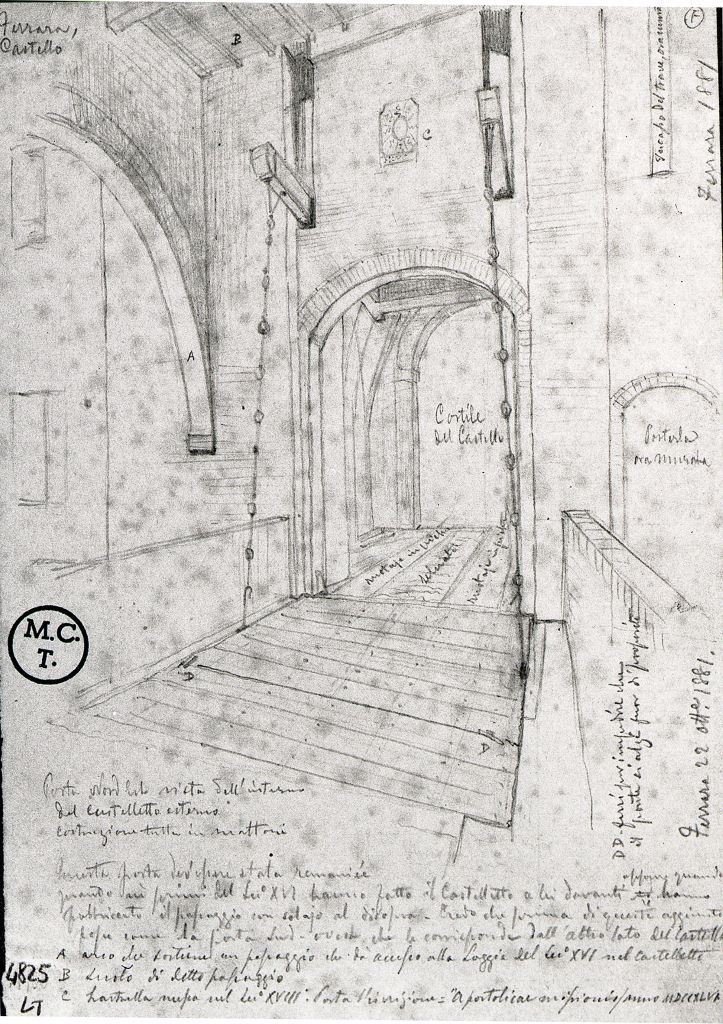 Ferrara,
Castello
B
F
Incavo del trave, ora murato
Ferrara 1881
C
A
Cortile
del Castello
Posterla
ora murata
rotaje in pietra
selciato
rotaje in pietra
M.C.
T.
D
D
DD. ferri per impedire che
il ponte si alzi fuor di proposito
Ferrara 22 ott.e 1881.
Porta Nord Est vista dall'interno
del Castelletto esterno
costruzione tutta in mattoni
Questa porta dev'essere stata
quando nei primi del Sec.o XVI hanno fatto il Castelletto a lei davanti oppure quando
hanno
fabbricato il passaggio con solajo al disopra. Credo che prima di queste aggiunte
fosse come la porta Sud-ovest che le corrisponde dall'altro lato del Castello
A arco che sostiene un passaggio che dà accesso alla Loggia del Sec.o XVI nel Castelletto
B Suolo di detto passaggio
C targhetta messa nel Sec.o XVIII. Porta l'iscrizione = "Apostolicae missionis anno
4825
LT